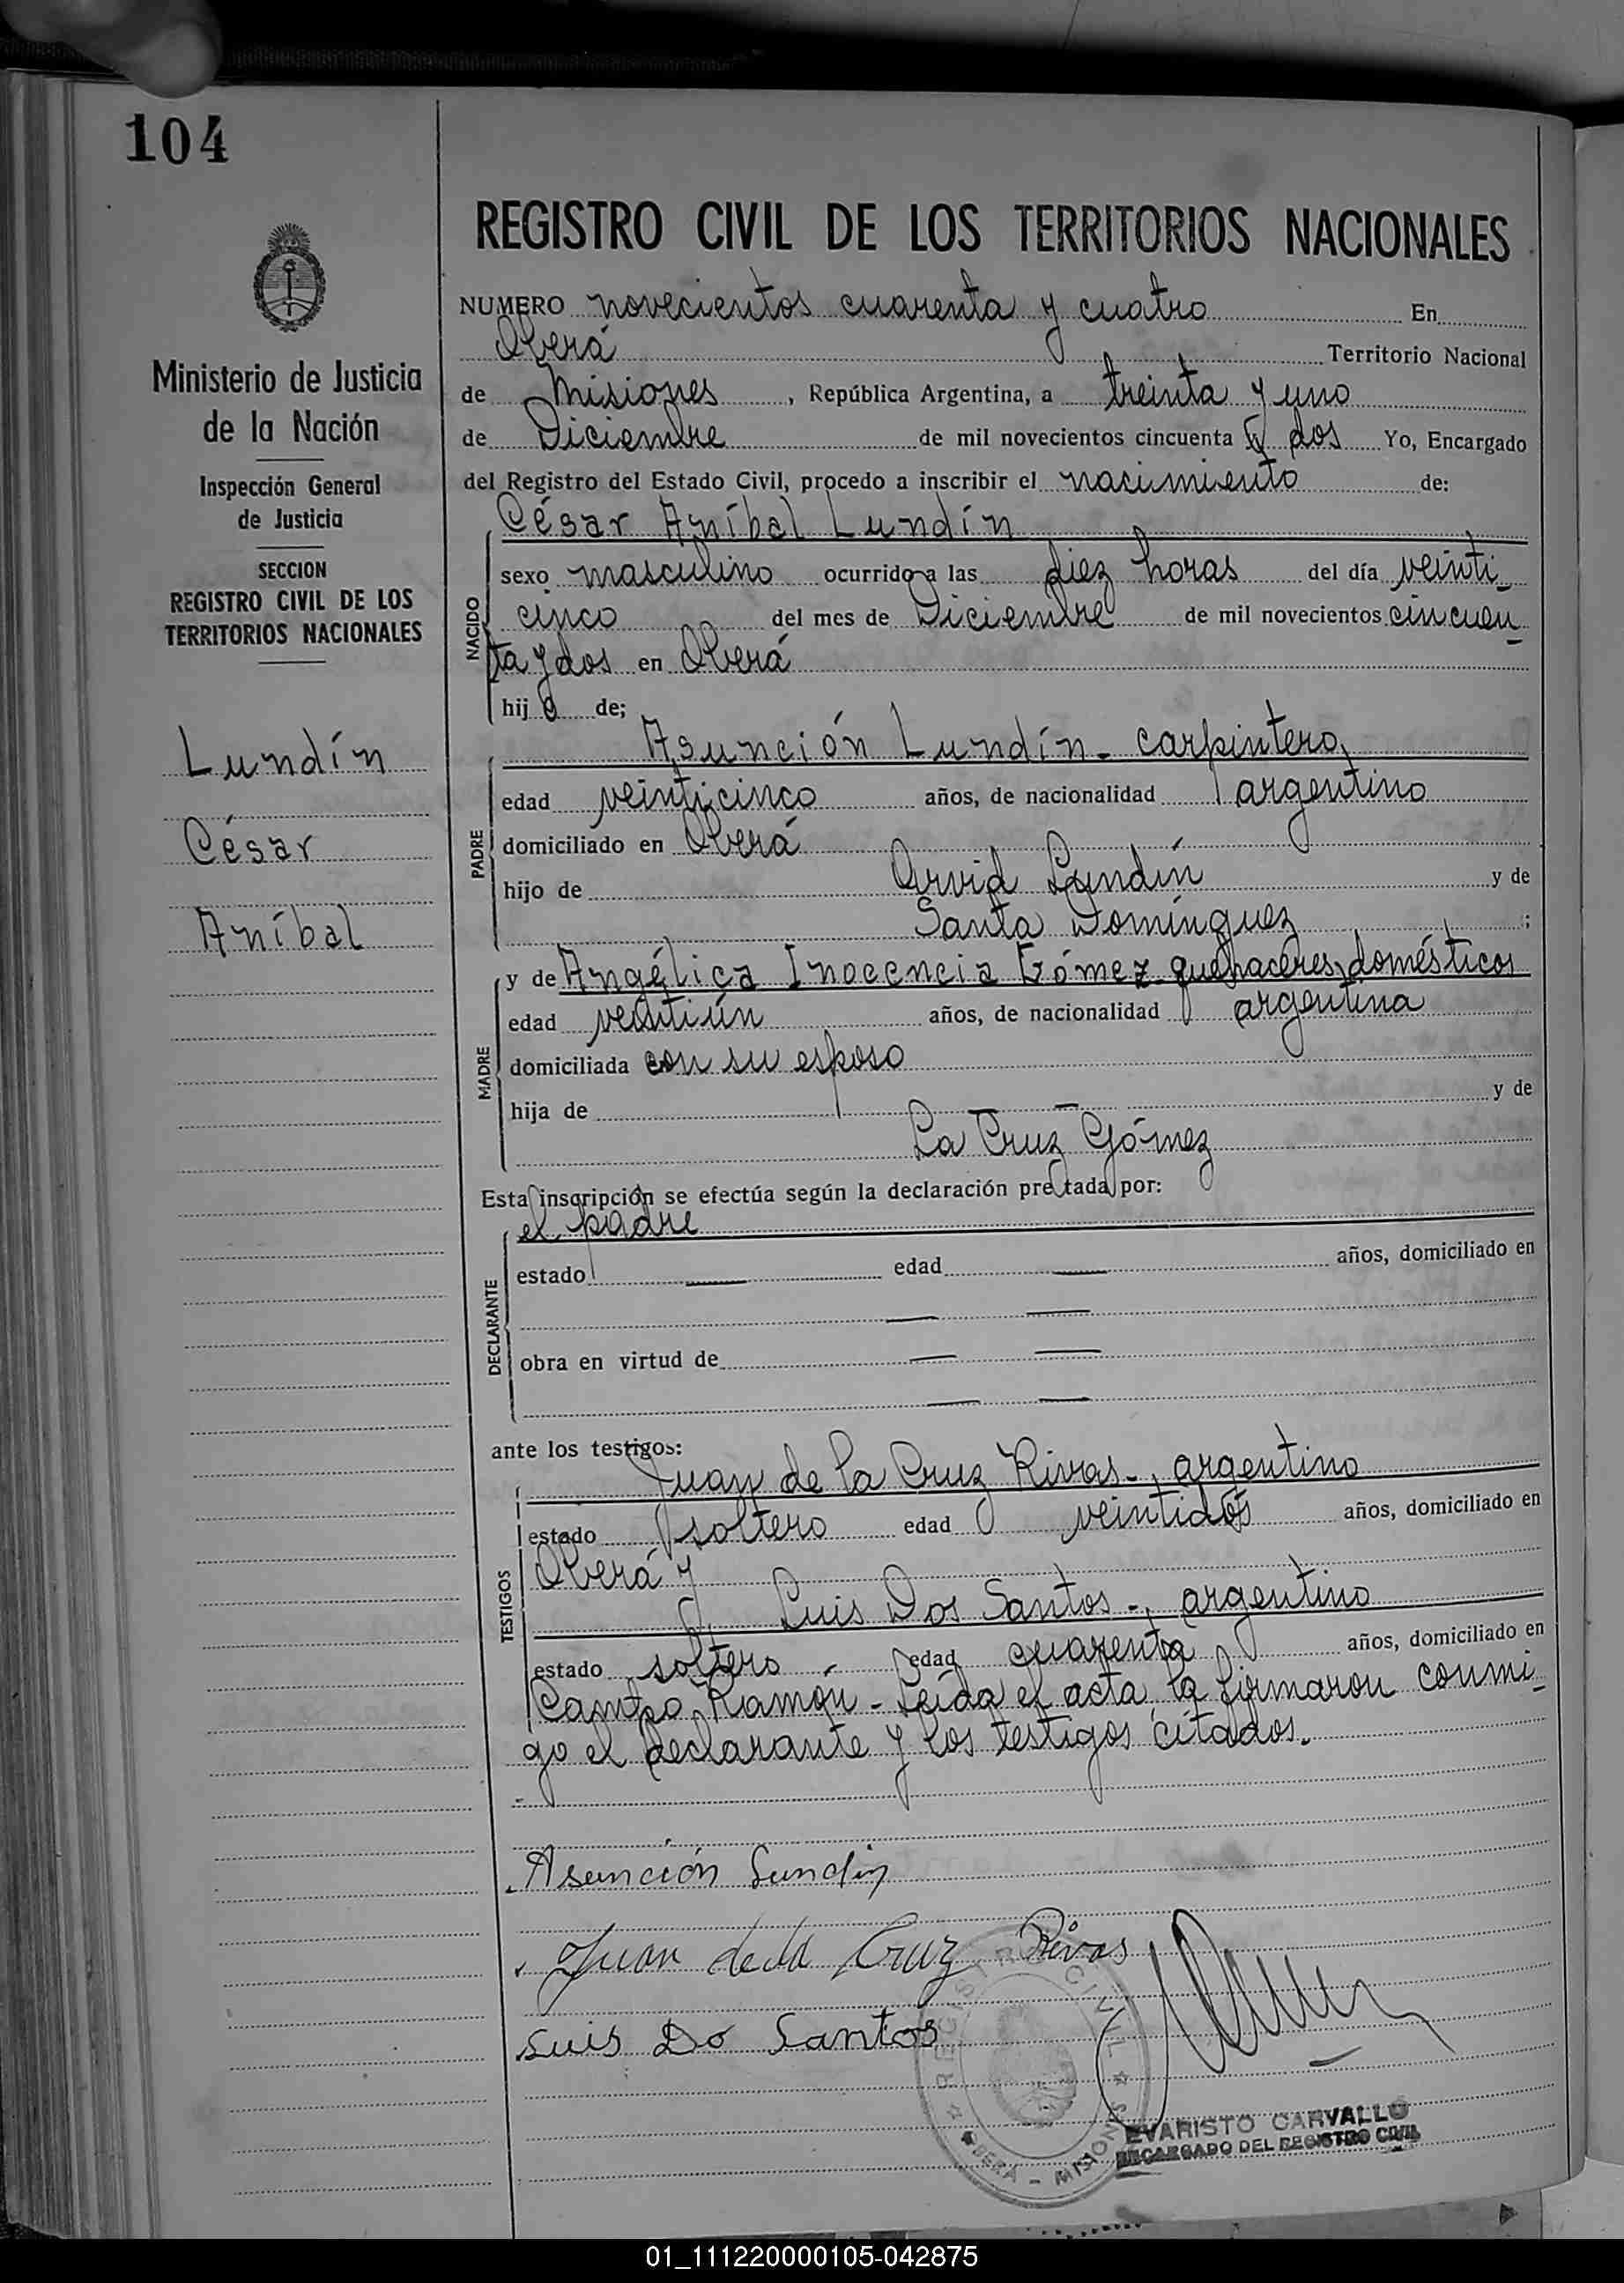 104
Ministerio de Justicia
de la Nación
Inspección General
de Justicia
SECCION
REGISTRO CIVIL DE LOS
TERRITORIOS NACIONALES
Lundín
César
Aníbal
REGISTRO CIVIL DE LOS TERRITORIOS NACIONALES
NUMERO novecientos cuarenta y cuatro En
Oberá Territorio Nacional
de Misiones, República Argentina, a treinta y uno
de Diciembre de mil novecientos cincuenta y dos Yo, Encargado
del Registro del Estado Civil, procedo a inscribir el nacimiento de:
César Aníbal Lundín
NACIDO
sexo masculino ocurrido a las diez horas del día veinti
cinco del mes de Diciembre de mil novecientos cincuen
ta y dos en Oberá
hijo de;
PADRE
Asunción Lundín - carpintero
edad veinticinco años, de nacionalidad argentino
domiciliado en Oberá
hijo de Arvid Lundín y de
Santa Domínguez ;
MADRE
y de Angélica Inocencia Gómez - quehaceres domésticos
edad veintiún años, de nacionalidad argentina
domiciliada con su esposo
hija de — — y de
La Cruz Gómez
Esta inscripción se efectúa según la declaración prestada por:
el padre
DECLARANTE
estado — edad — años, domiciliado en
— —
obra en virtud de — —
— —
ante los testigos:
TESTIGOS
Juan de la Cruz Rivas -, argentino
estado soltero edad veintidós años, domiciliado en
Oberá y
Luis Dos Santos -, argentino
estado soltero - edad cuarenta años, domiciliado en
Campo Ramón - Leída el acta la firmaron conmi
go el declarante y los testigos citados.
Asunción Lundin
Juan de la Cruz Rivas
Luis Do Santos
REGISTRO CIVIL
OBERÁ - MISIONES
EVARISTO CARVALLO
ENCARGADO DEL REGISTRO CIVIL
01_111220000105-042875